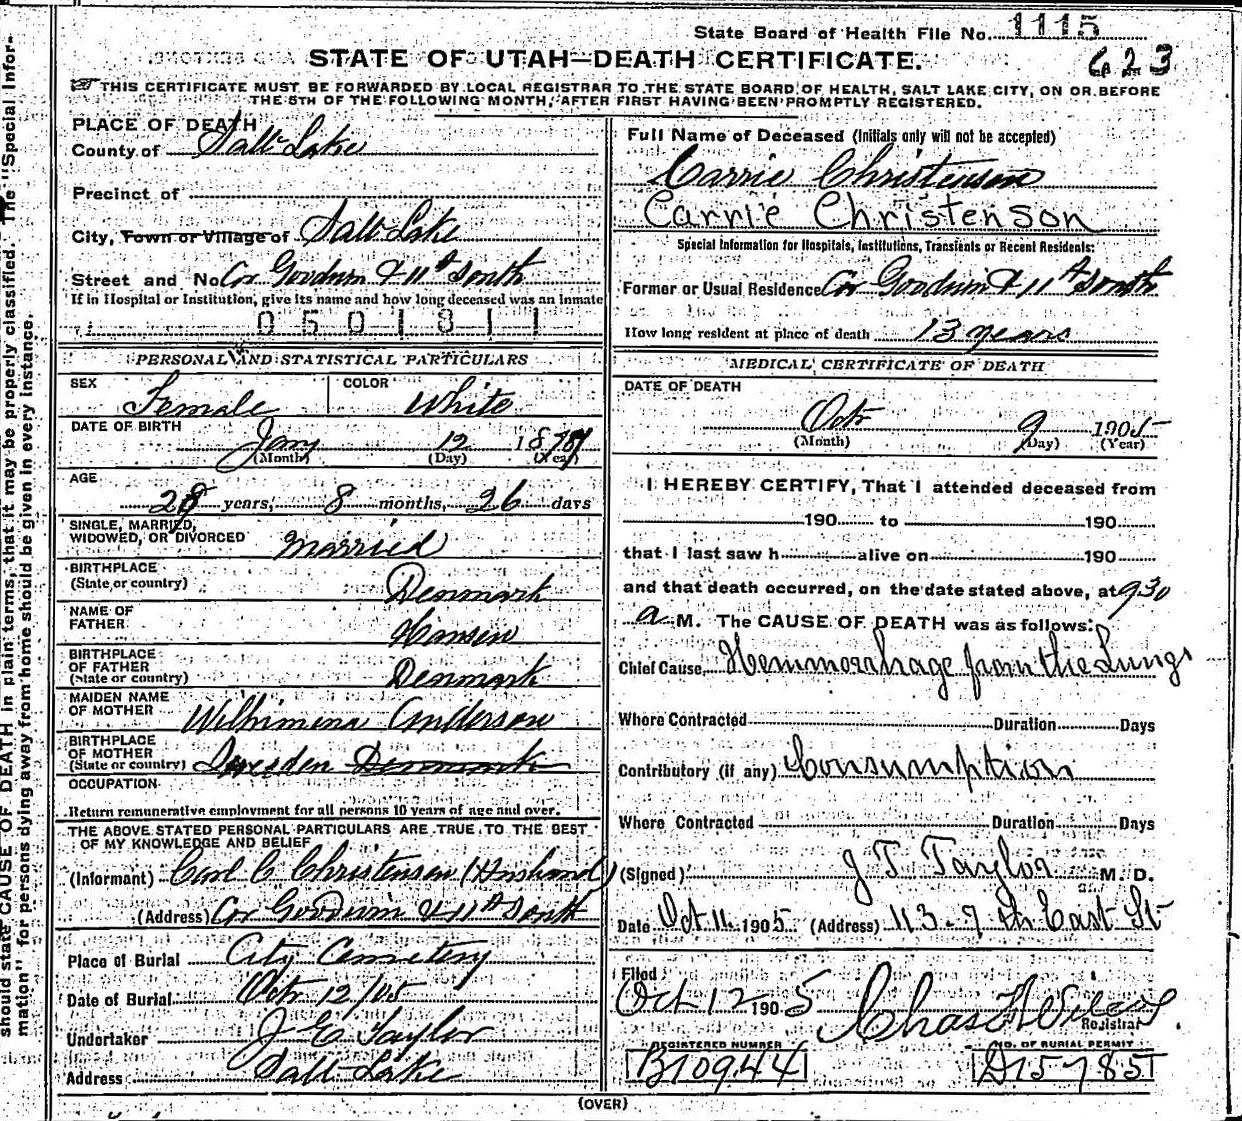 State Board of Health File No. 1115
623
STATE OF UTAH—DEATH CERTIFICATE.
THIS CERTIFICATE MUST BE FORWARDED BY LOCAL REGISTRAR TO THE STATE BOARD OF HEALTH, SALT LAKE CITY, ON OR BEFORE
THE 5TH OF THE FOLLOWING MONTH, AFTER FIRST HAVING BEEN PROMPTLY REGISTERED.
should state CAUSE OF DEATH in plain terms, that it may be properly classified. The "Special Infor-
mation" for persons dying away from home should be given in every instance.
PLACE OF DEATH
County of Salt Lake
Precinct of
City, Town or Village of Salt Lake
Street and No Cor Goodwin & 11th South
If in Hospital or Institution, give its name and how long deceased was an inmate
0501811
PERSONAL AND STATISTICAL PARTICULARS
SEX Female COLOR White
DATE OF BIRTH
Jany 12 187
(Month) (Day) (Year)
AGE
28 years, 8 months, 26 days
SINGLE, MARRIED,
WIDOWED, OR DIVORCED Married
BIRTHPLACE
(State or country) Denmark
NAME OF
FATHER Hansen
BIRTHPLACE
OF FATHER
(State or country) Denmark
MAIDEN NAME
OF MOTHER Wilhimena Anderson
BIRTHPLACE
OF MOTHER
(State or country) Sweeden Denmark
OCCUPATION
Return remunerative employment for all persons 10 years of age and over.
THE ABOVE STATED PERSONAL PARTICULARS ARE TRUE TO THE BEST
OF MY KNOWLEDGE AND BELIEF
(Informant) Carl C Christensen (Husband)
(Address) Cor Goodwin & 11th South
Place of Burial City Cemetery
Date of Burial Oct 12/05
Undertaker J E Taylor
Address Salt Lake
Full Name of Deceased (Initials only will not be accepted)
Carrie Christenson
Carrie Christenson
Special Information for Hospitals, Institutions, Transients or Recent Residents:
Former or Usual Residence Cor Goodwin & 11th South
How long resident at place of death 13 years
MEDICAL CERTIFICATE OF DEATH
DATE OF DEATH
Oct 9 1905
(Month) (Day) (Year)
I HEREBY CERTIFY, That I attended deceased from
190 to 190
that I last saw h alive on 190
and that death occurred, on the date stated above, at 9 30
a M. The CAUSE OF DEATH was as follows:
Chief Cause, Hemmorrhage from the Lungs
Where Contracted Duration Days
Contributory (if any) Consumption
Where Contracted Duration Days
(Signed) J T Taylor M. D.
Date Oct 11 1905 (Address) 113-7th East St
Filed
Oct 12 1905 Chas
Registrar
REGISTERED NUMBER NO. OF BURIAL PERMIT
B10944 D15785
(OVER)